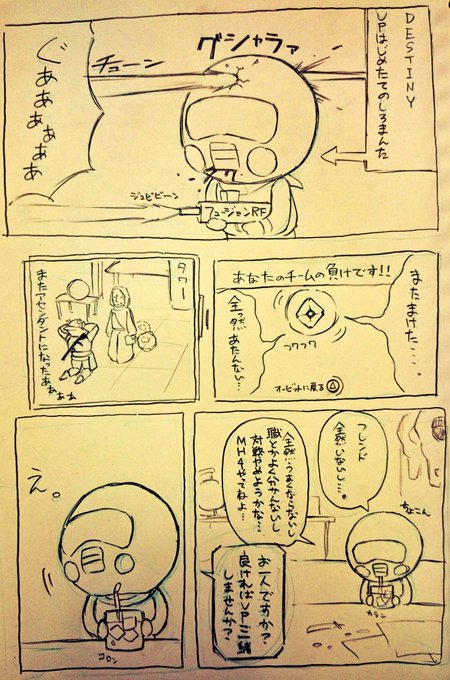 DESTINY
VPはじめたてのしろまんた
グシャラァ
チューーン
ぐぁぁぁぁぁぁ
フュージョンRF
ジュビビーン
またまけた‥‥。
あなたのチームの負けです!!
フワフワ
全然あたんない…
オービットに戻る△
タワー
またアセンダントになったぁぁぁぁ
フレンド
全然いないし…。
ちょこん
全然うまくならないし
職とかよく分かんないし
対戦やめようかな…
MH4やってねよ…
カラン
お一人ですか?
良ければVPご一緒
しませんか?
え。
コロン